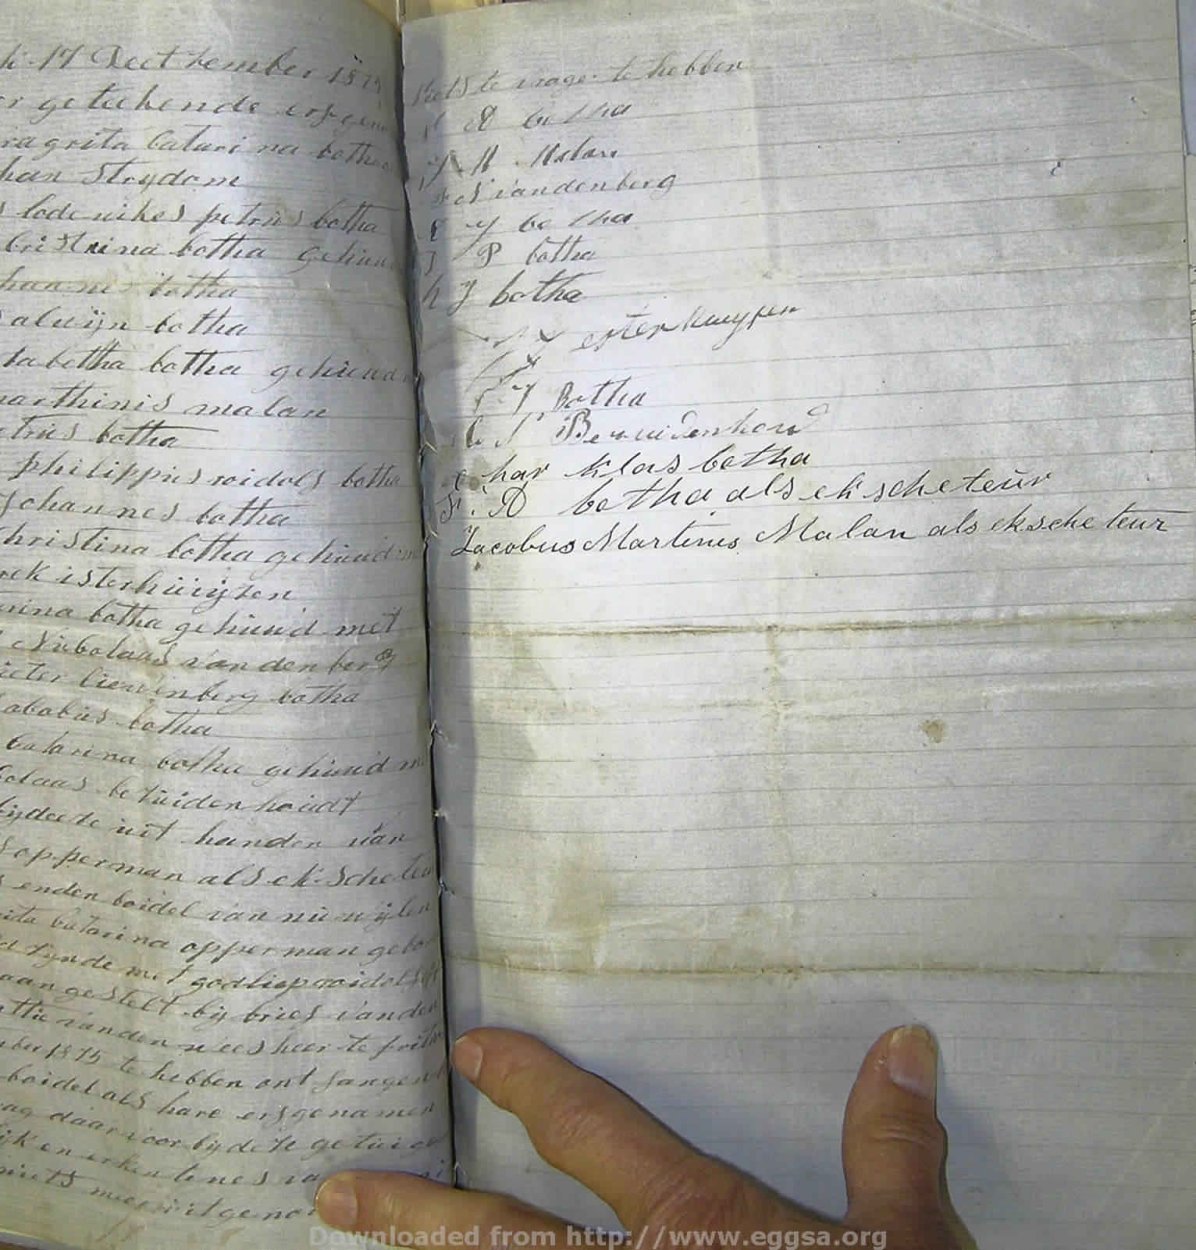 17 Dect tember 1875
geteekende erfgen
magrita Catarina botha
han Strydom
lodewikes petrus botha
Cristina botha gehuu
hannes botha
alwijn botha
sabetha botha gehuwd
marthinis malan
etrus botha
philippus roidolf botha
Johannes botha
Christina botha gehuwd
rek isterhuijzen
arina botha gehuud met
Nikolaas vandenberg
ieter liewenberg botha
akobus botha
Catarina botha gehuud m
kolaas betuidenhoudt
uit handen van
opperman als ek-Schete
enden boidel van nu wijlen
rita Catarina opperman gebo
tynde met godliep roidolf
aangestelt bij brief vanden
vanden weesheer te
ber 1875 te hebben ontfangen
boidel als hare erfgenamen
ag daar voor bij de
en erkentenes va
niets meer uit
niets te vrage te hebben
A botha
J M Malan
vandenberg
E J botha
J P botha
h J botha
esterhuyzen
J Botha
Bezuidenhoud
har klas botha
F. A botha als ekscheteur
Jacobus Martinus Malan als eksche teur
Downloaded from http://www.eggsa.org